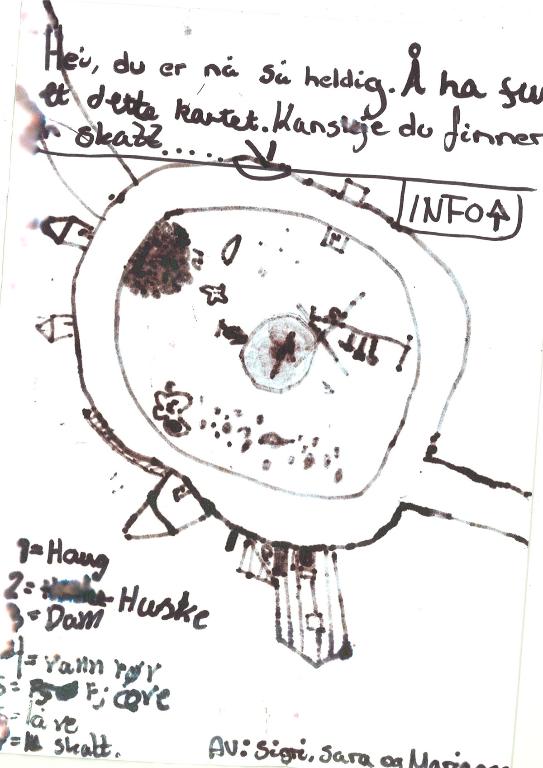 Hei, du er nå så heldig. Å ha fu
et dette kartet. Kanskje du finner
n skatt.......
INFO↑
1=Haug
2= Huske
3=Dam
4=vann rør
5= Fjøre
låve
skatt.
AV: Sigri, Sara og